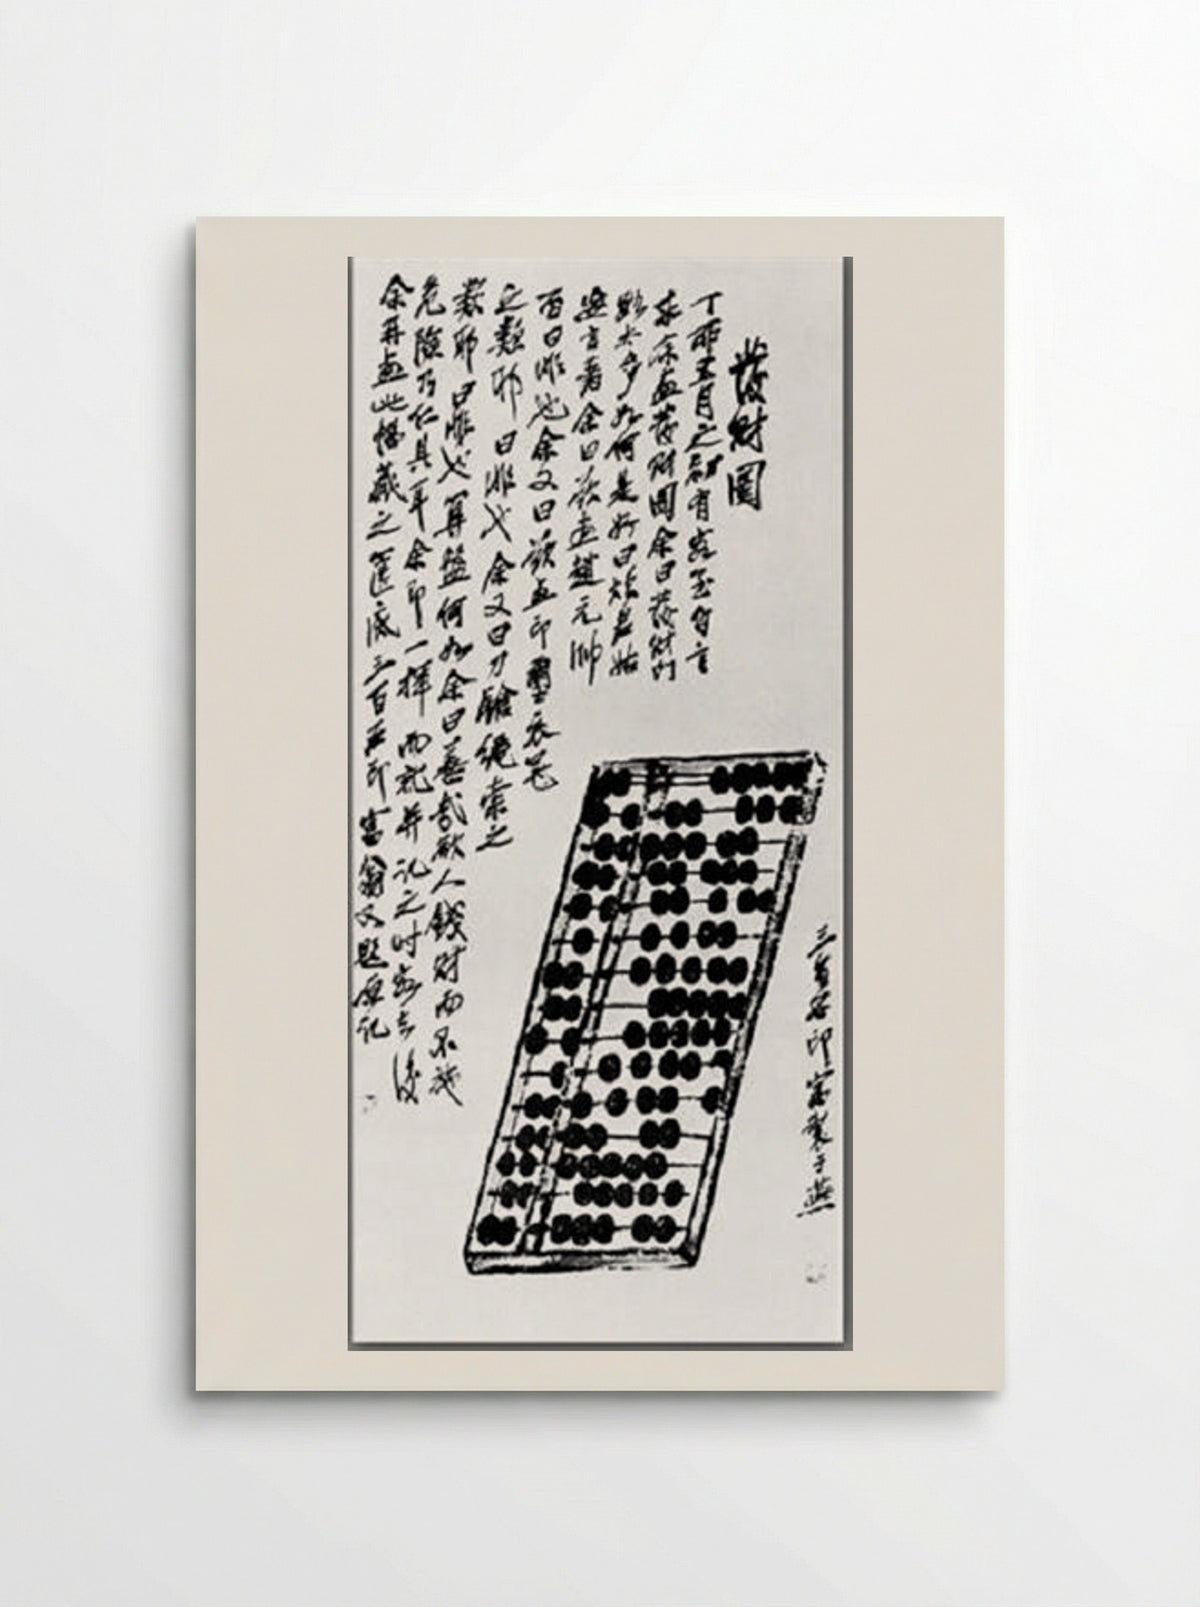 發財圖
丁卯五月之初有客至自言
求余画發財圖余曰發財門
路太多如何是好曰煩君姑
妄言著余曰欲画趙元帥
否曰非也余又曰欲画印璽衣冠
之類耶曰非也余又曰刀鎗繩索之
類耶曰非也算盤何如余曰善哉欲人錢財而不施
危險乃仁具耳余即一揮而就并記之時客去後
余再画此幅藏之篋底三百石印富翁又題原記
三百石印富製于燕